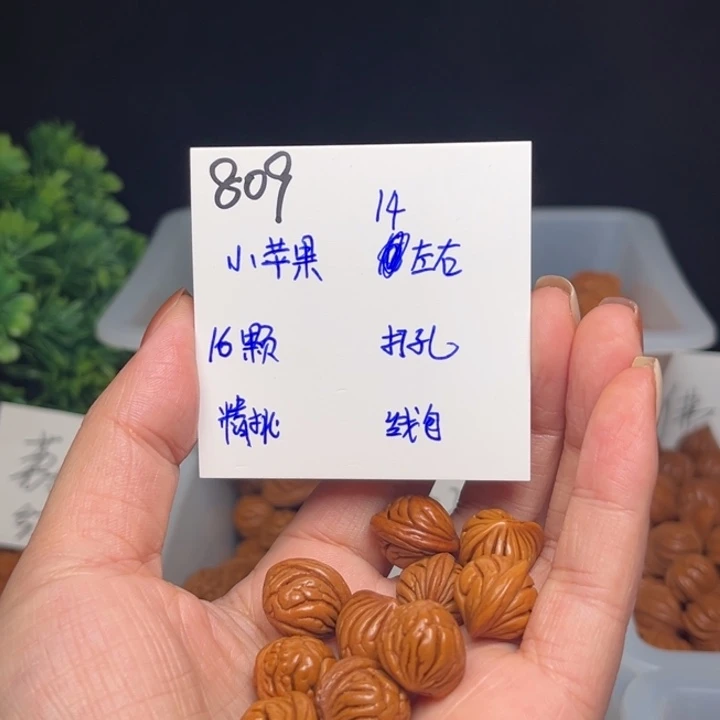 809
14
小苹果 左右
16颗 打孔
精挑 线包